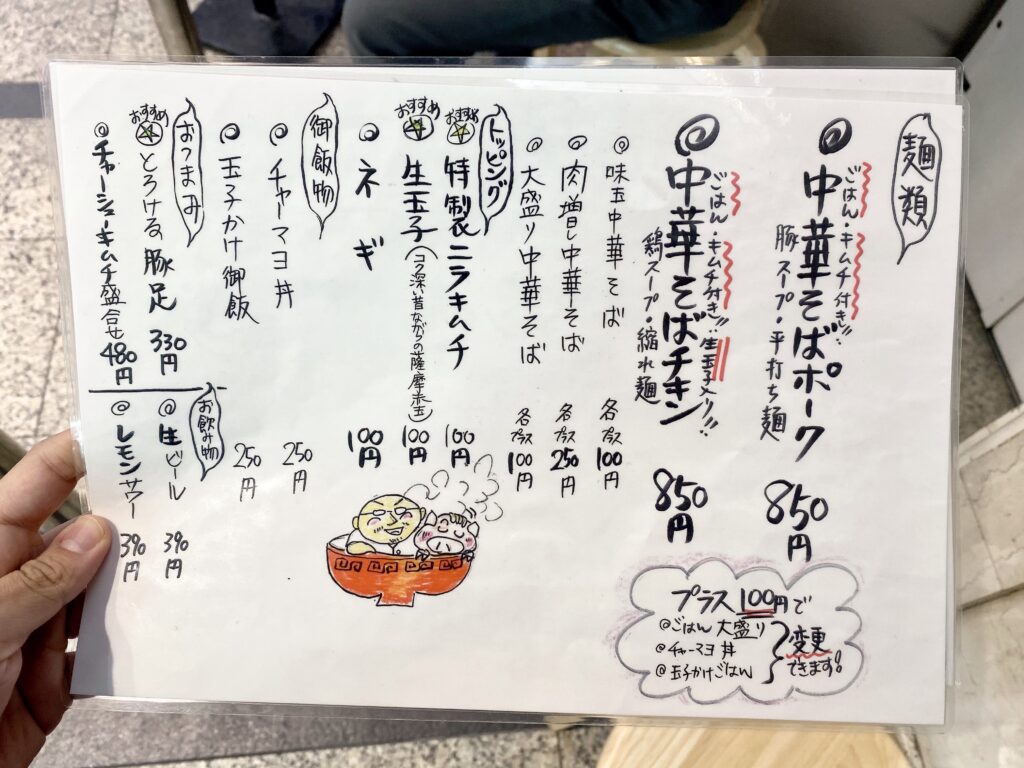 麺類
ごはん・キムチ付き!!
◎中華そばポーク 850円
豚スープ・平打ち麺
ごはん・キムチ付き!!生玉子入り!!
◎中華そばチキン 850円
鶏スープ・縮れ麺
◎味玉中華そば 各プラス100円
◎肉増し中華そば 各プラス250円
◎大盛り中華そば 各プラス100円
トッピング
おすすめ 特製ニラキムチ 100円
おすすめ 生玉子(コク深い昔ながらの薩摩赤玉) 100円
◎ネギ 100円
御飯物
◎チャーマヨ丼 250円
◎玉子かけ御飯 250円
おつまみ
おすすめ とろける豚足 330円
◎チャーシューキムチ盛合せ 480円
お飲み物
◎生ビール 390円
◎レモンサワー 390円
プラス100円で
◎ごはん大盛り
◎チャーマヨ丼
◎玉子かけごはん
変更
できます!